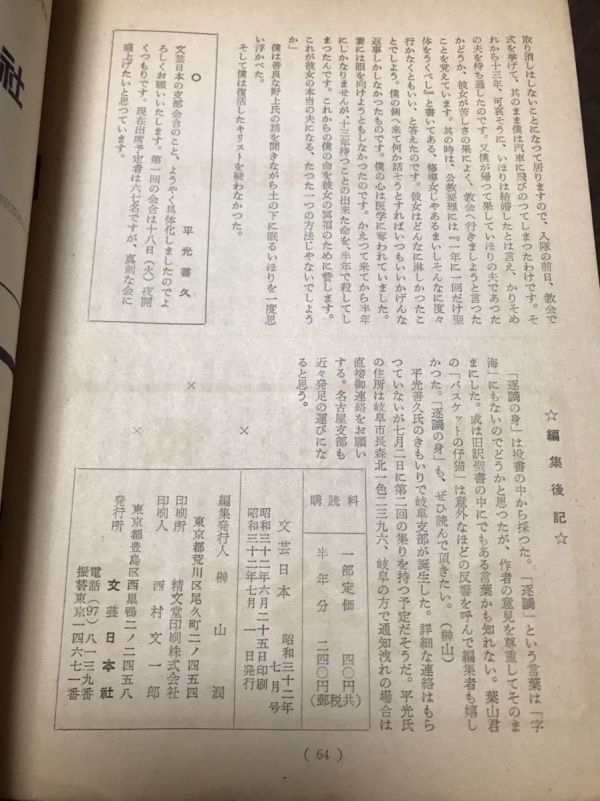 取り消しはしないことになつて居りますので、入隊の前日、教会で
式を挙げて、其のまま僕は汽車に飛びのつてしまつたわけです。そ
れから十三年、可哀そうに、いほりは結婚したとは言え、かりそめ
の夫を待ち通したのです。又僕が帰つて果していほりの夫であつた
かどうか、彼女が苦しさの果によく、教会へ行きましようと言つた
ことを覚えています。其の時は、公教要理には『一年に一回だけ聖
体をうくべし』と書いてある、修道女じやあるまいしそんなに度々
行かなくともいい、と答えたのです。彼女はどんなに淋しかつたこ
とでしよう。僕の側へ来て何か話そうとすればいつもいいかげんな
返事しかしなかつたものです。僕の心は医学に奪われていました。
妻には眼を向けようともしなかつたのです。かえつて来てから半年
にしかなりませんが、十三年待つことの出来た命を、半年で殺してし
まつたんです。これからの僕の命を彼女の冥福のために費します。
これが彼女の本当の夫になる、たつた一つの方法じやないでしよう
か」
僕は善良な野上氏の話を聞きながら土の下に眠るいほりを一度思
い浮かべた。
そして僕は復活したキリストを疑わなかつた。
○
平光善久
文芸日本の支部会合のこと、ようやく具体化しましたのでよ
ろしくお願いいたします。第一回の会合は十八日（火）夜開
くつもりです。現在出席予定者は六七名ですが、真剣な会に
盛上げたいと思つています。
☆編集後記☆
「逐謫の身」は投書の中から採つた。「逐謫」という言葉は「字
海」にもないのでどうかと思つたが、作者の意見を尊重してそのま
まにした。或は旧訳聖書の中にでもある言葉かも知れない。葉山君
の「バスケットの仔猫」は意外なほどの反響を呼んで編集者も嬉し
かつた。「逐謫の身」も、ぜひ読んで頂きたい。（榊山）
平光善久氏のきもいりで岐阜支部が誕生した。詳細な連絡はもら
つていないが七月二日に第二回の集りを持つ予定だそうだ。平光氏
の住所は岐阜市長森北一色二三九六、岐阜の方で通知洩れの場合は
直接御連絡をお願い
する。名古屋支部も
近々発足の運びにな
ると思う。
×
×
×
購読料
一部定価 四〇円
半年分 二四〇円
（郵税共）
文芸日本 昭和三十二年
七月号
昭和三十二年六月二十五日印刷
昭和三十二年七月 一日発行
編集発行人 榊山潤
東京都荒川区尾久町二ノ四五四
印刷所 精文堂印刷株式会社
印刷人 西村文一郎
東京都豊島区西巣鴨二ノ二四五八
発行所 文芸日本社
電話（97）八一三九番
振替東京一四六七一番
( 64 )
社